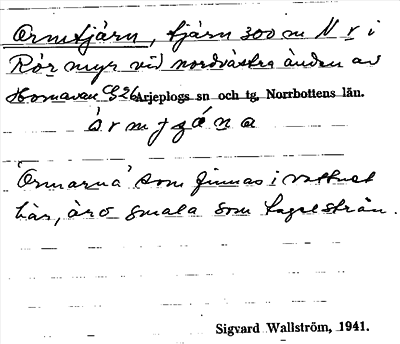 Ormtjärn, tjärn 300 m N r i
Rörmyr vid nordvästra änden av
Hornavan G26 Arjeplogs sn och tg, Norrbottens län.
'Ormarna' som finnas i vattnet
här, äro smala som tagelstrån.
Sigvard Wallström, 1941.